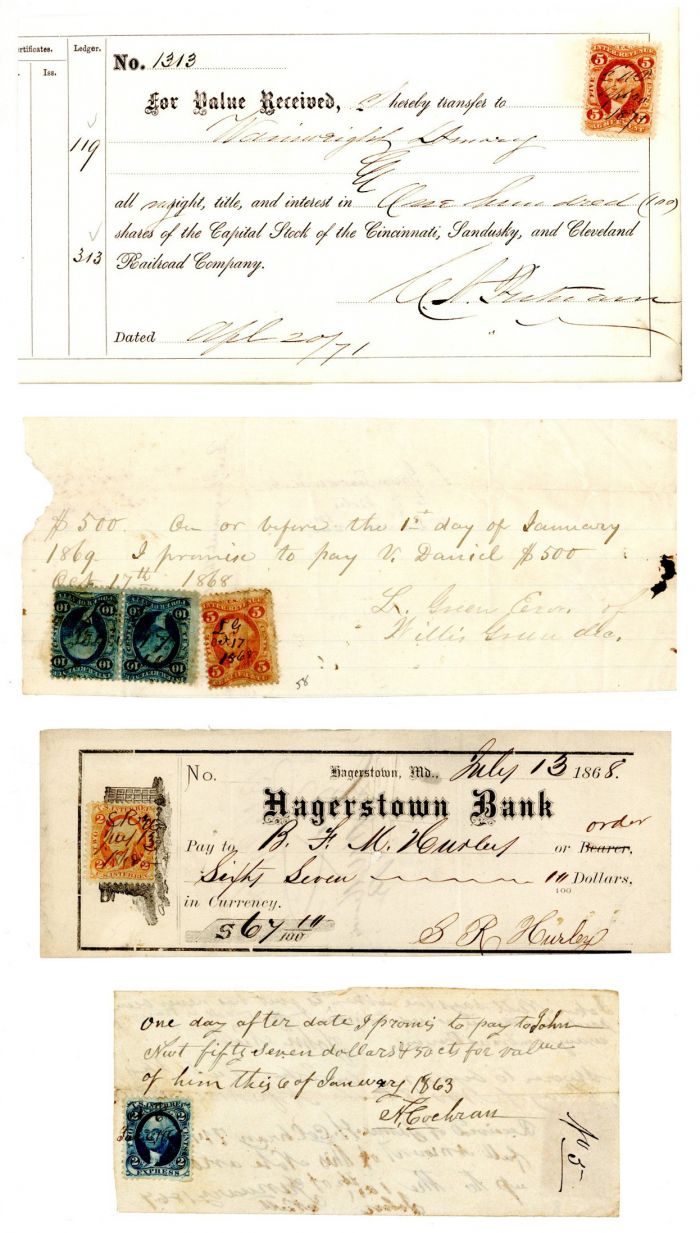 ertificates.
Ledger.
Iss.
No. 1313
For Value Received, I hereby transfer to
Wainwright & Amory
119
all my right, title, and interest in One hundred (100)
shares of the Capital Stock of the Cincinnati, Sandusky, and Cleveland
313
Railroad Company.
Putnam
Dated Apl 20/71
5 U.S. 5
INTER. REVENUE
FIVE
5 5
AGREEM'T
1871
$500. On or before the 1st day of January
1869 I promise to pay V. Daniel $500
Oct 17th 1868
L. Green Exor. of
Willis Green dec.
10 10
10 10
5 5
INTER. REVENUE
L G
Oct 17
1868
5 5
CERTIFICATE
58
No. Hagerstown, Md., July 13 1868.
Hagerstown Bank
order
Pay to B. F. M. Hurley or Bearer,
Sixty Seven 10/100 Dollars,
in Currency.
$67 10/100
S R Hurley
2 U.S. INTER. REV. 2
S R H
July 13
1868
2 2
U.S. INTER. REV.
One day after date I promis to pay to John
Newt fifty seven dollars & 50 cts for value
of him this 6 of January 1863
A Cochran
U.S. INTER. REV.
2 2
EXPRESS
No 5